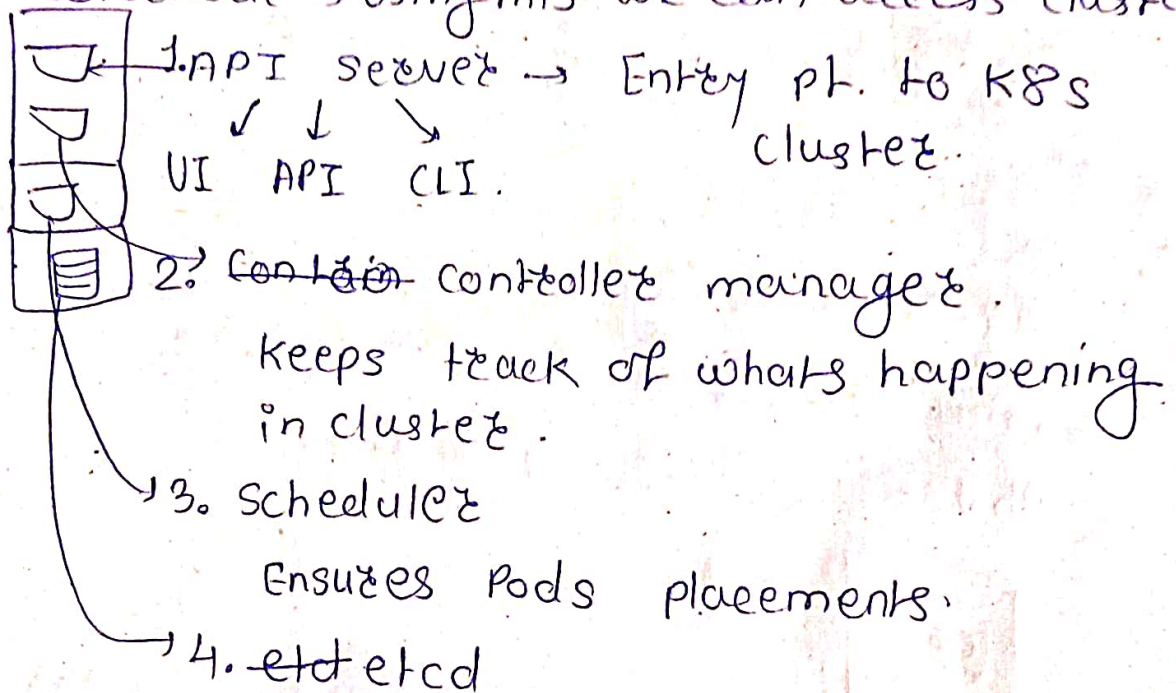 using this we can access
1. API server → Entry pt. to K8s
cluster.
UI API CLI.
2. Contain controller manager.
keeps track of whats happening
in cluster.
3. Scheduler
Ensures Pods placements.
4. etd etcd